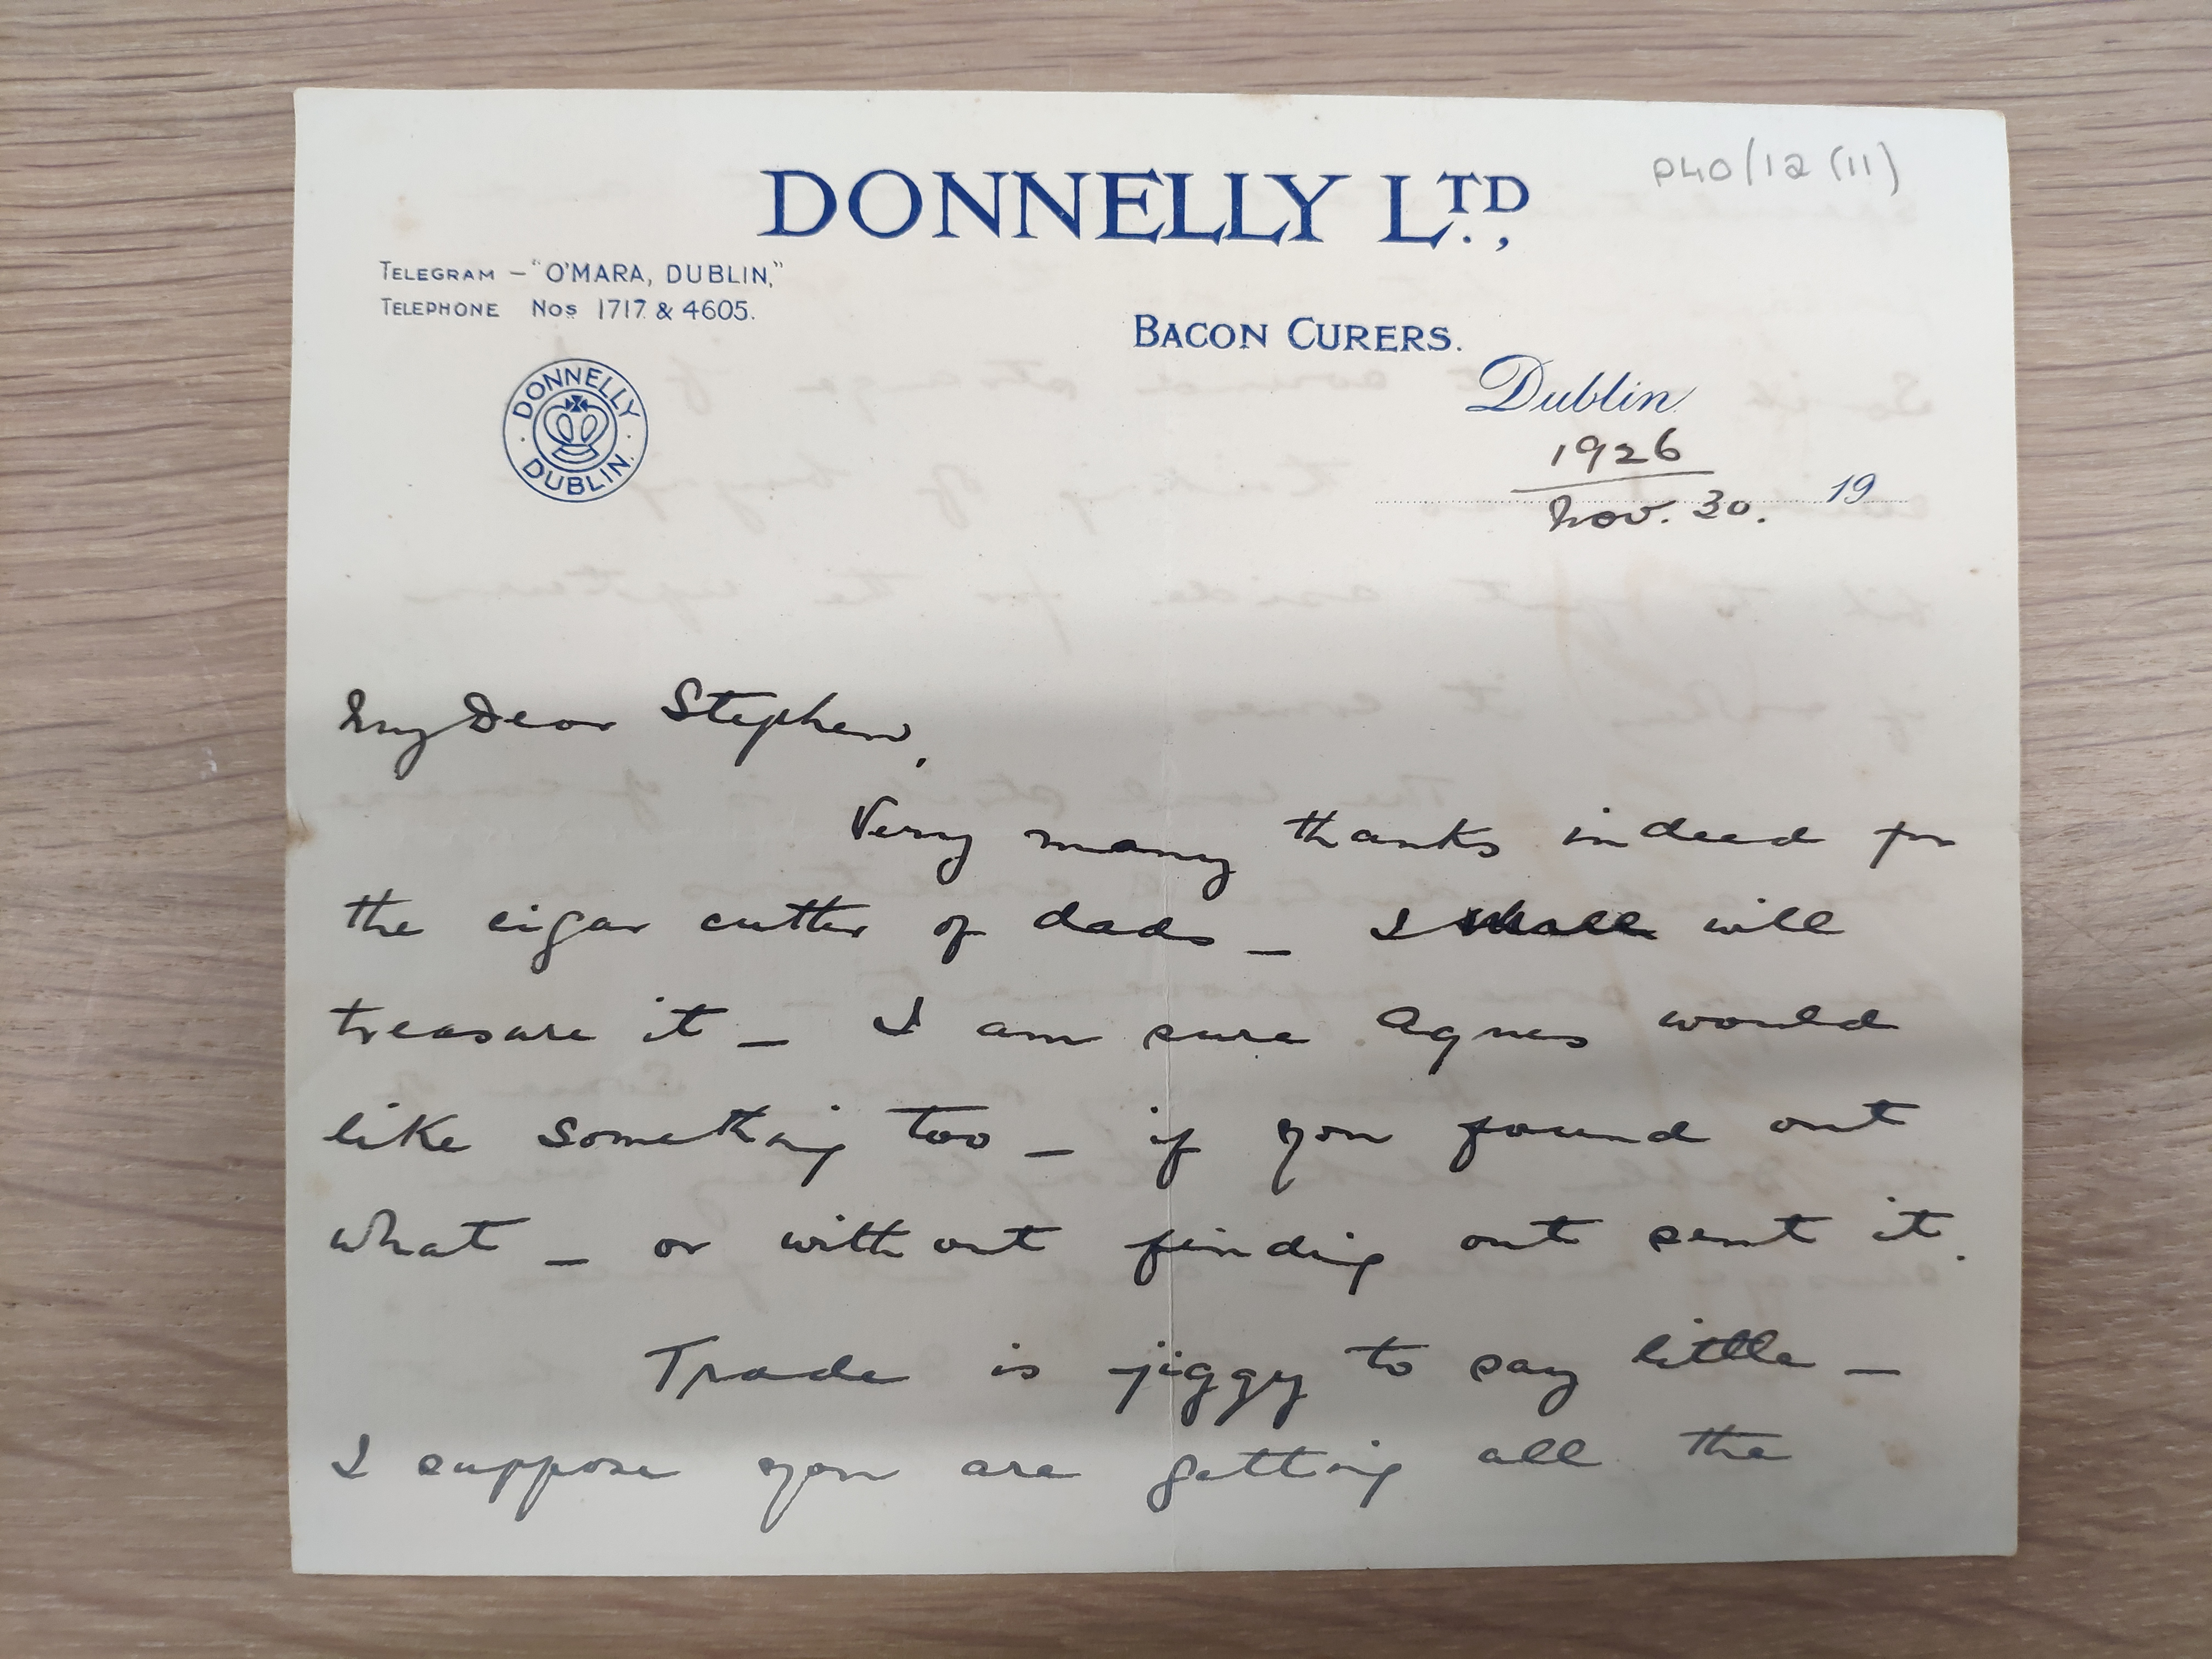 P40/12 (11)
DONNELLY LTD.,
TELEGRAM – "O'MARA, DUBLIN,"
TELEPHONE Nos 1717 & 4605.
BACON CURERS.
DONNELLY
DUBLIN.
Dublin
1926
Nov. 30. 19
My Dear Stephen,
Very many thanks indeed for
the cigar cutter of dads _ I shall will
treasure it _ I am sure Agnes would
like something too _ if you found out
what _ or without finding out sent it.
Trade is jiggy to say little _
I suppose you are getting all the